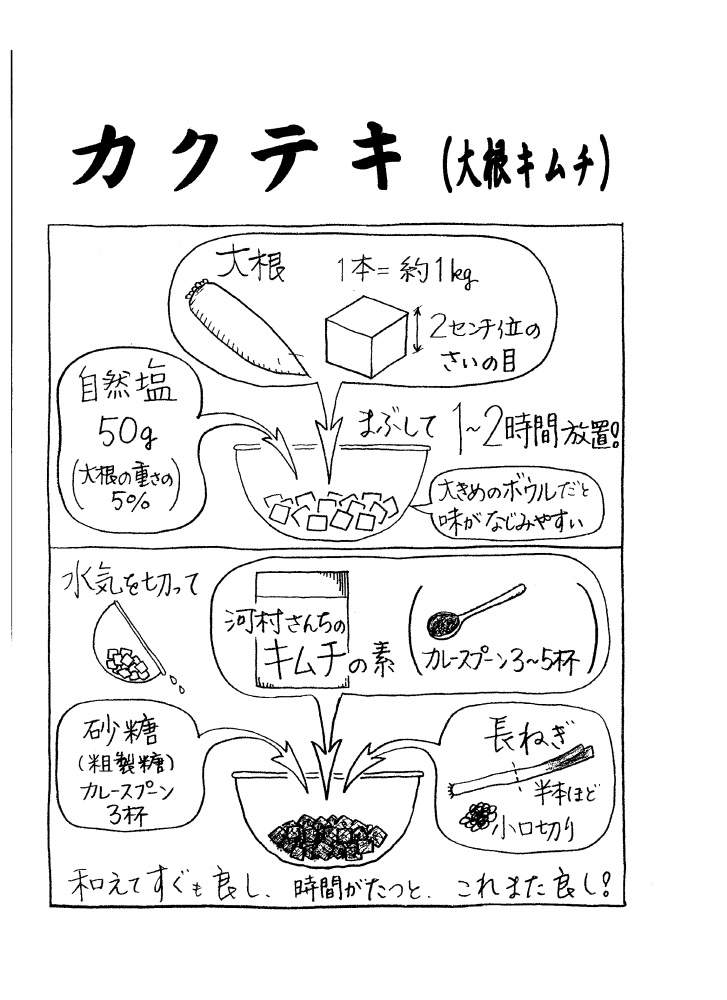 カクテキ(大根キムチ)
大根
1本=約1kg
2センチ位の
さいの目
自然塩
50g
(大根の重さの
5%)
まぶして 1~2時間放置!
大きめのボウルだと
味がなじみやすい
水気を切って
河村さんちの
キムチの素
(カレースプーン3~5杯)
砂糖
(粗製糖)
カレースプーン
3杯
長ねぎ
半本ほど
小口切り
和えてすぐも良し、時間がたつと、これまた良し!